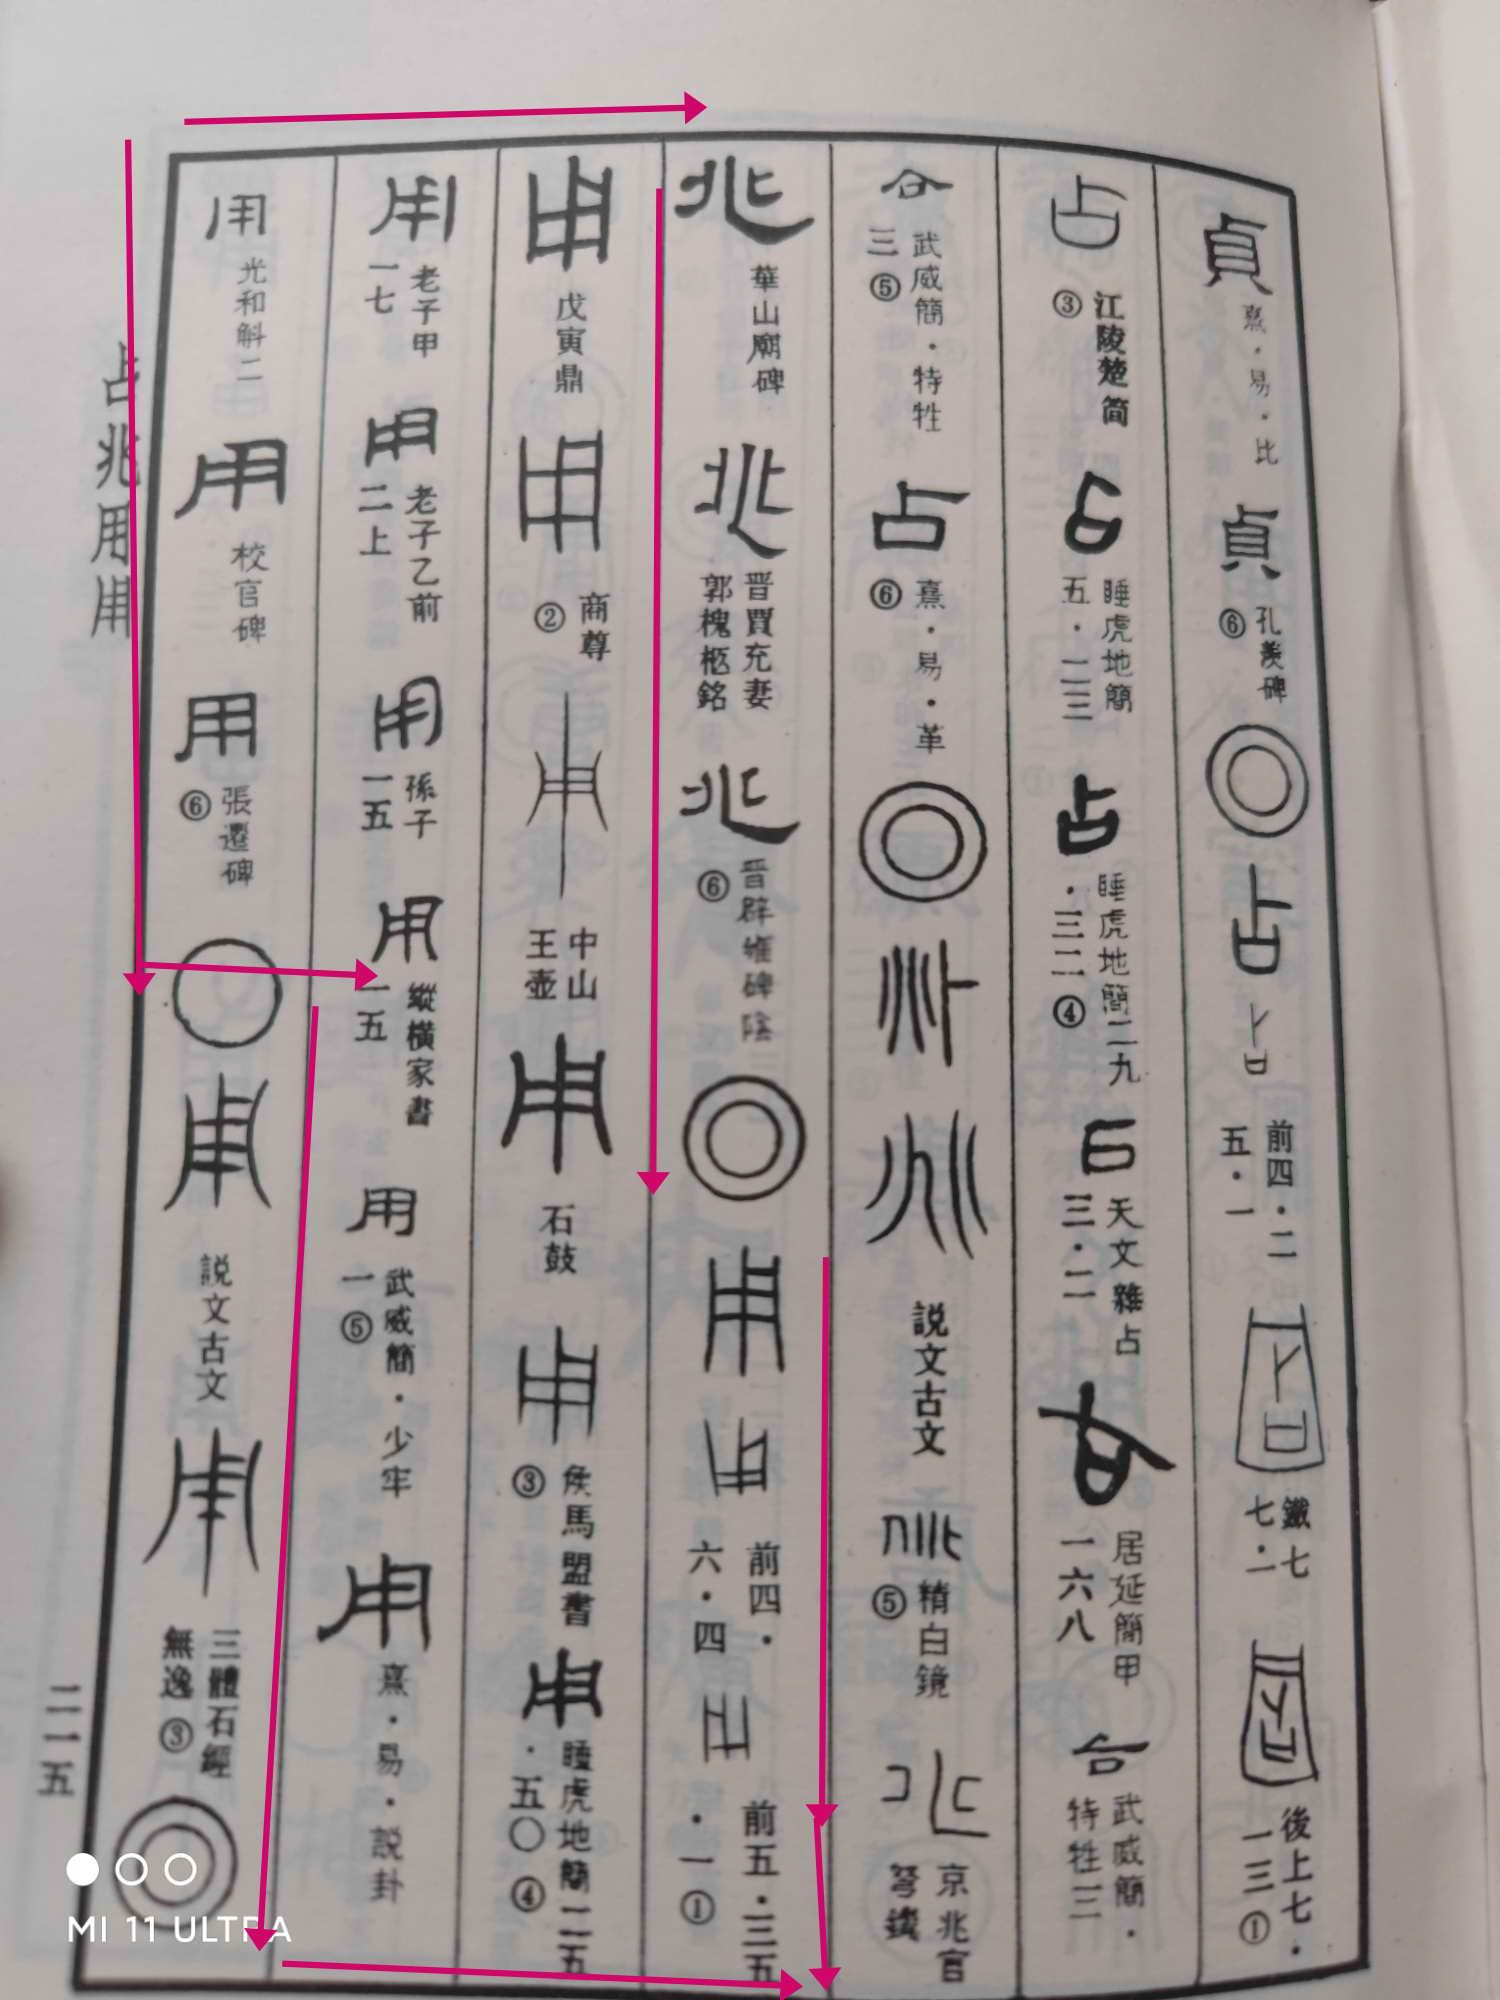 貞 熹·易·比 貞 孔羨碑 ⑥ ◎ 占 占 前四·二五·一 占 鐵七七·一 占 後上七·一三 ①
占 江陵楚简 ③ 占 睡虎地簡五·一二三 占 睡虎地簡二九·三二二 ④ 占 天文雜占三·二 占 居延簡甲一六八 占 武威簡·特牲一二
占 武威簡·特牲三 ⑤ 占 熹·易·革 ⑥ ◎ 兆 兆 説文古文 兆 精白鏡 ⑤ 兆 京兆官弩鐖
兆 華山廟碑 兆 晋賈充妻郭槐柩銘 兆 晋辟雍碑陰 ⑥ ◎ 用 用 前四·六·四 用 前五·三五·一 ①
用 戊寅鼎 用 商尊 ② 用 中山王壺 用 石鼓 用 侯馬盟書 ③ 用 睡虎地簡二五·五〇 ④
用 老子甲一七 用 老子乙前二上 用 孫子一五 用 縱橫家書一五 用 武威簡·少牢一 ⑤ 用 熹·易·説卦
用 光和斛二 用 校官碑 用 張遷碑 ⑥ ○ 用 説文古文 用 三體石經無逸 ③ ◎
占兆用
二一五
MI 11 ULTRA